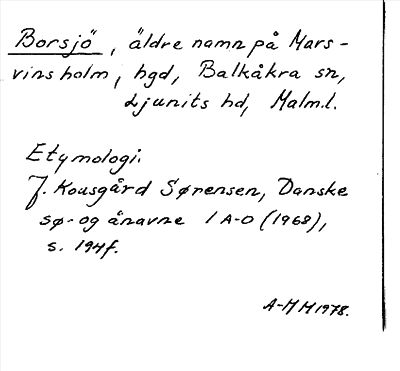 Borsjö, äldre namn på Mars-
vinsholm, hgd, Balkåkra sn,
Ljunits hd, Malm.l.
Etymologi:
J. Kousgård Sørensen, Danske
sø- og ånavne 1 A-D (1968),
s. 194f.
A-M M 1978.